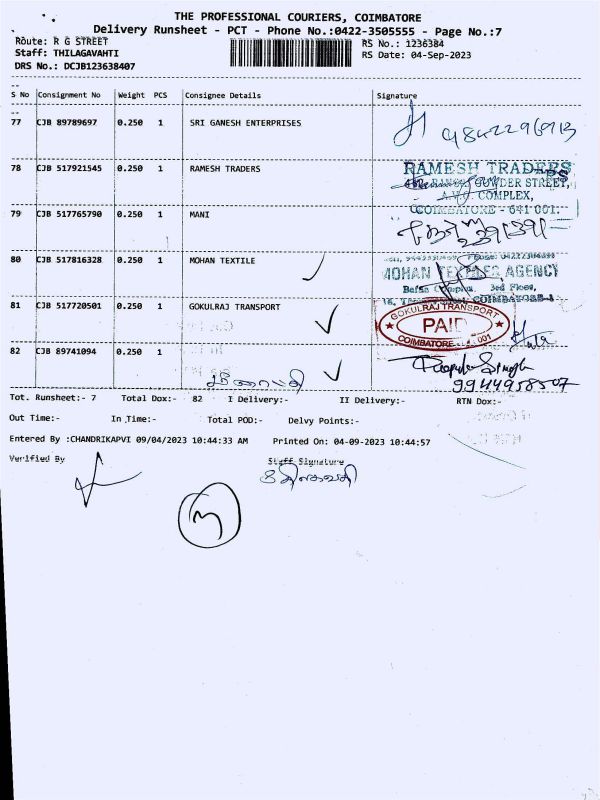 THE PROFESSIONAL COURIERS, COIMBATORE
Delivery Runsheet - PCT - Phone No.:0422-3505555 - Page No.:7
Route: R G STREET
RS No.: 1236384
Staff: THILAGAVAHTI
RS Date: 04-Sep-2023
DRS No.: DCJB123638407
S No Consignment No Weight PCS Consignee Details Signature
77 CJB 89789697 0.250 1 SRI GANESH ENTERPRISES
9842296913
78 CJB 517921545 0.250 1 RAMESH TRADERS
RAMESH TRADERS
GOWDER STREET,
COMPLEX,
COIMBATORE - 641 001.
79 CJB 517765790 0.250 1 MANI
80 CJB 517816328 0.250 1 MOHAN TEXTILE
MOHAN AGENCY
3rd Floor,
COIMBATORE-1
81 CJB 517720501 0.250 1 GOKULRAJ TRANSPORT
GOKULRAJ TRANSPORT
PAID
COIMBATORE 001
82 CJB 89741094 0.250 1
9944958507
Tot. Runsheet:- 7 Total Dox:- 82 I Delivery:- II Delivery:- RTN Dox:-
Out Time:- In Time:- Total POD:- Delvy Points:-
Entered By :CHANDRIKAPVI 09/04/2023 10:44:33 AM Printed On: 04-09-2023 10:44:57
Verified By Staff Signature